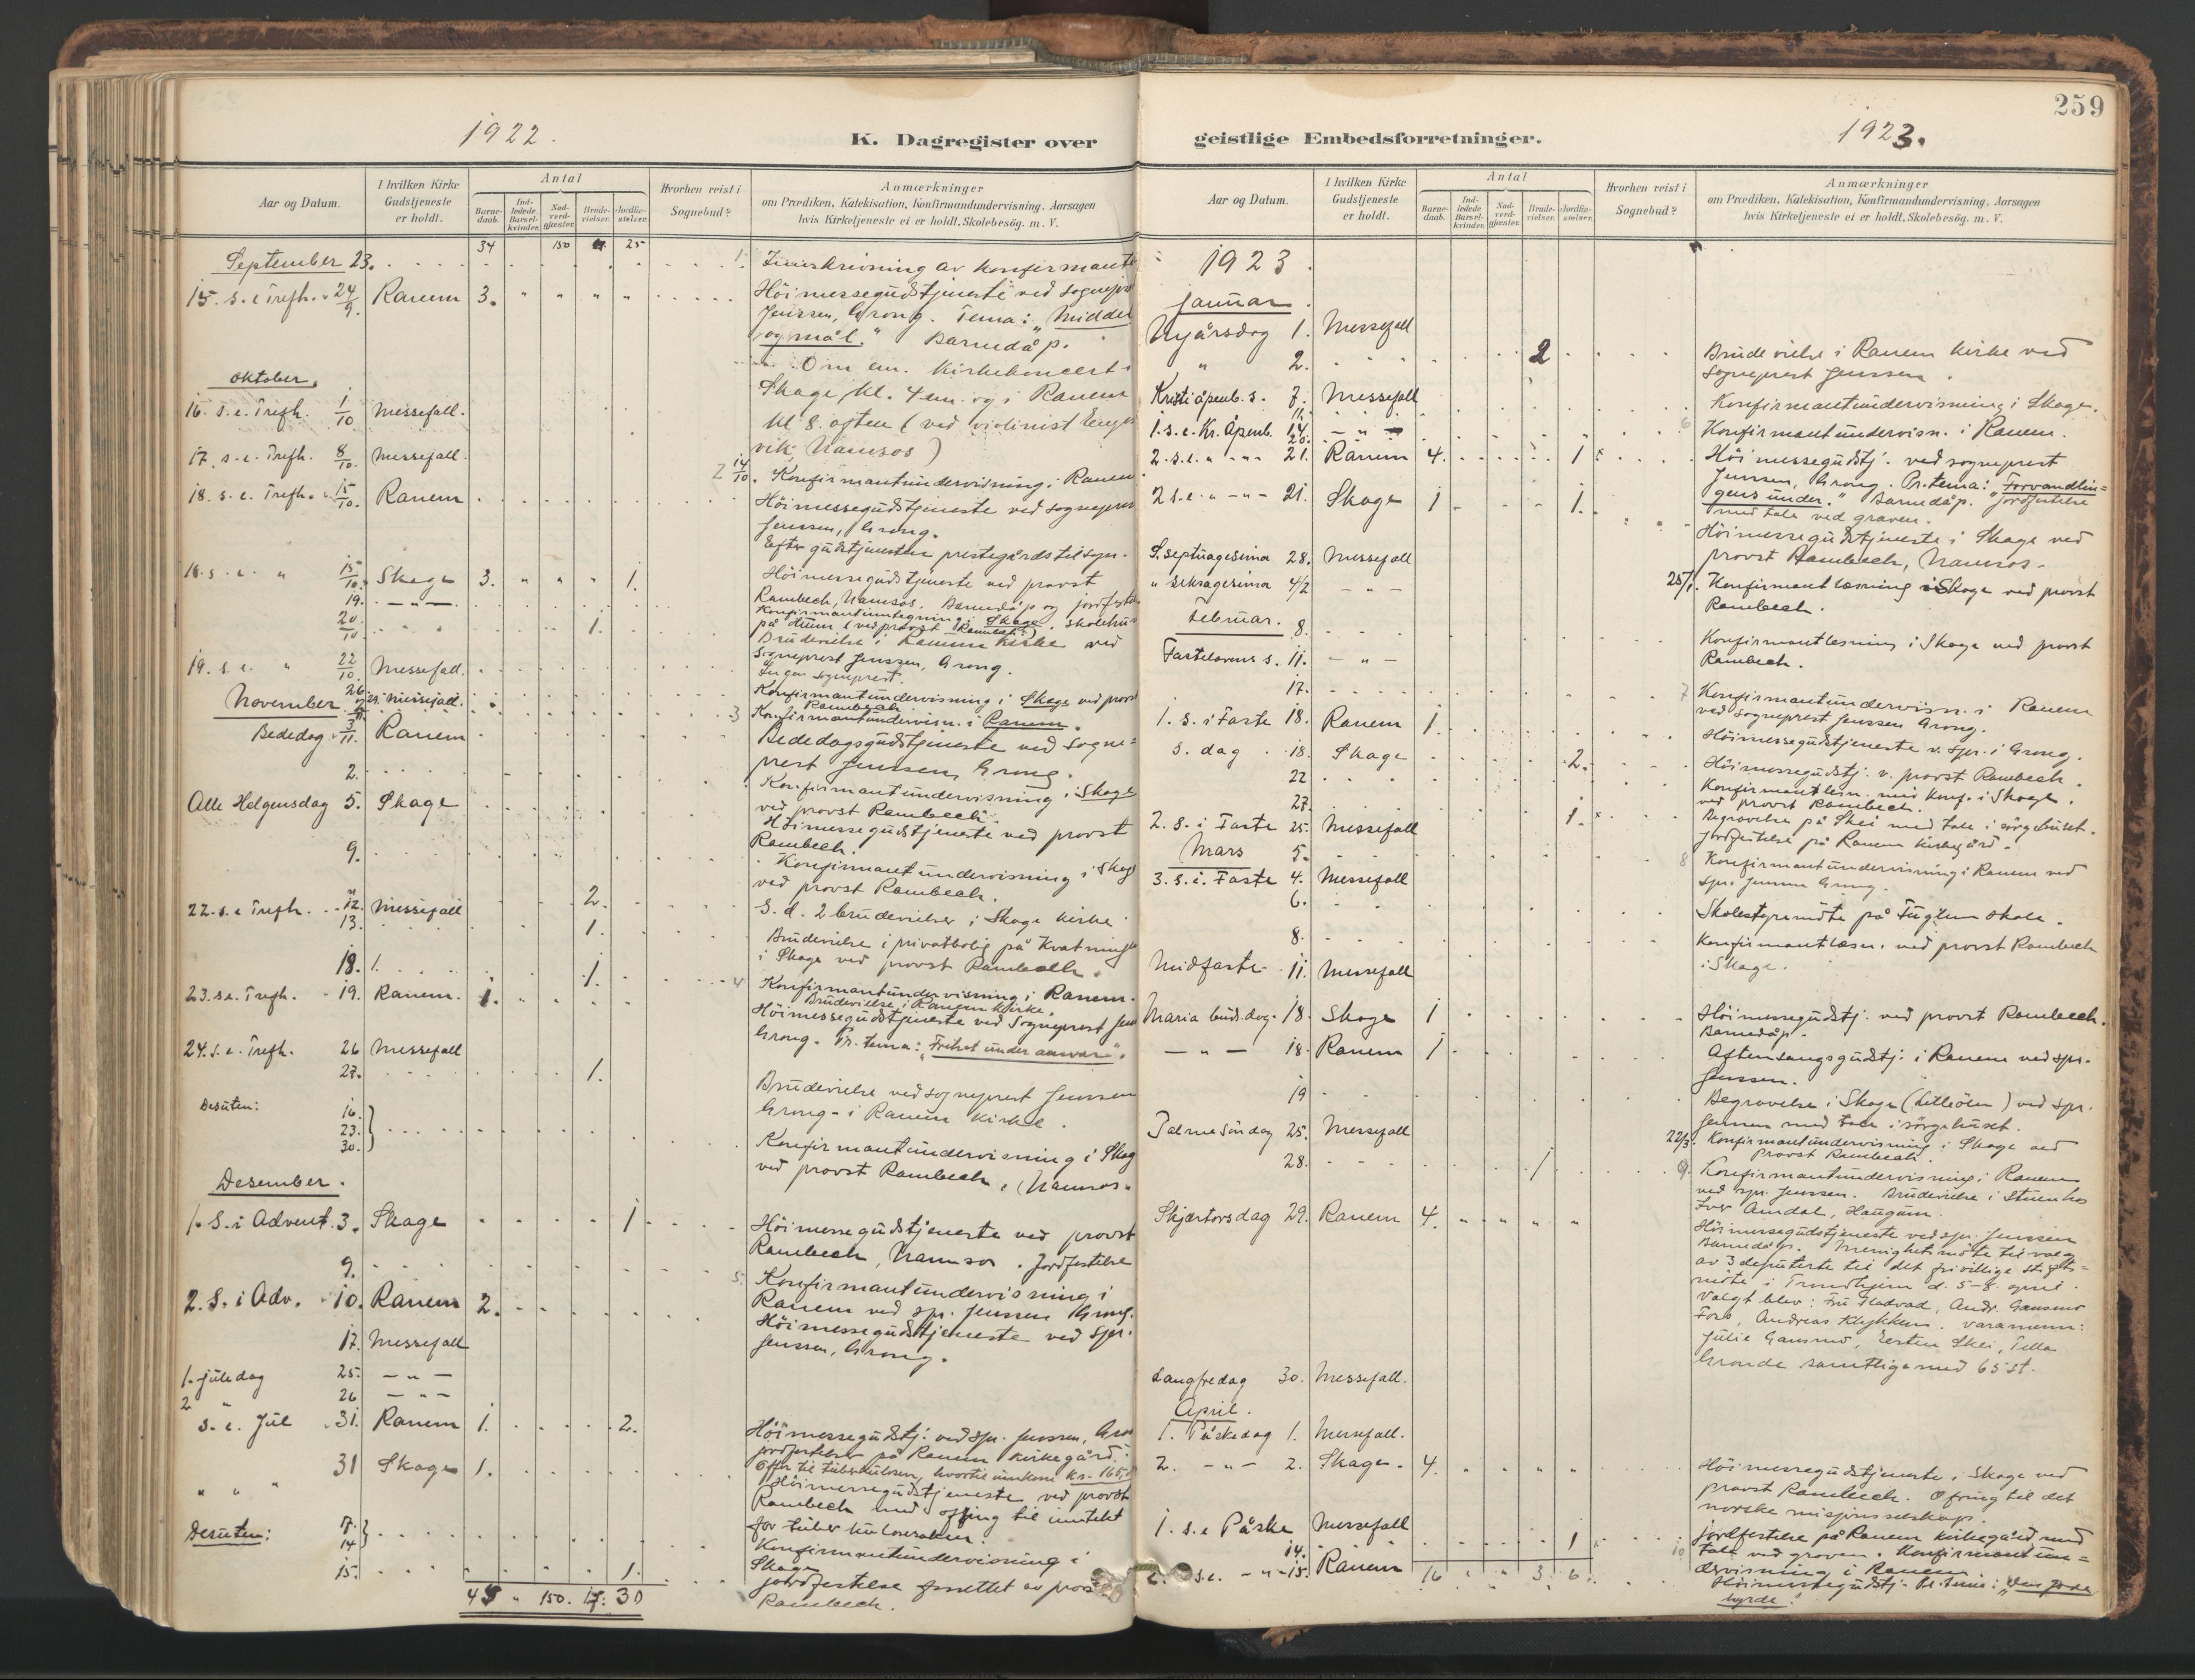 259
1922.
K. Dagregister over
Aar og Datum.
I hvilken Kirke Gudstjeneste er holdt.
Antal
Barne-daab.
Ind-ledede Barsel-kvinder.
Nad-verd-gjester.
Brude-vielser.
Jordfæ-stelser.
Hvorhen reist i Sognebud?
Anmærkninger
om Prædiken, Katekisation, Konfirmandundervisning. Aarsagen
hvis Kirketjeneste ei er holdt. Skolebesög. m. V.
34 150 25
September 23. 1.
15. s. e. Trefh. 24/9. Ranem 3. Höimessegudstjeneste ved sognepr
Jenssen, Grong. Tema: "Middel
og mål." Barnedåp.
Om em. Kirkekoncert i
oktober.
Skage kl. 4 em. og i Ranem
16. s. e. Trefh. 1/10 Messefall.
kl 8. aften (ved violinist
vik, Namsos)
17. s. e. Trefh. 8/10. Messefall.
2 14/10. Konfirmantundervisning i Ranem
18. s. e. Trefh. 15/10. Ranem
Höimessegudstjeneste ved sogneprest
Jenssen, Grong.
Efter gudstjenesten prestegårdstilsyn.
18. s. e. " 15/10. Skage 3. " " " 1. Höimessegudstjeneste ved provst
Rambech, Namsos. Barnedåp og
19. — " —
Skage skolehus
20/10 1. Brudevielse i Ranem Kirke ved
sogneprest Jenssen, Grong.
19. s. e. " 22/10 Messefall.
Ingen sogneprest.
26. Konfirmantundervisning i Skage ved provst
Rambech.
November Messefall.
3 Konfirmantundervisn. i Ranem.
Bededag 3/11. Ranem
Bededagsgudstjeneste ved Sogne=
prest Jenssen, Grong.
2. Konfirmantundervisning i Skage
ved provst Rambech.
Alle Helgensdag 5. Skage
Höimessegudstjeneste ved provst
Rambech.
9. Konfirmantundervisning i Skage
ved provst Rambech.
22. s. e. Trefh. 12. Messefall 2. S. d. 2 brudevielser i Skage kirke.
13. 1. Brudevielse i privatbolig på Kvatning
i Skage ved provst Rambech.
18. 1. 1. 4 Konfirmantundervisning i Ranem.
Brudevielse i Ranem Kirke.
23. s. e. Trefh. 19. Ranem. 1. Höimessegudstjeneste ved Sogneprest
Grong. Pr. tema: "Frihet under ansvar".
24. s. e. Trefh. 26 Messefall
27. 1. Brudevielse ved sogneprest Jenssen
Grong - i Ranem Kirke.
Desuten: 16. 23. 30. } Konfirmantundervisning i Skage
ved provst Rambech, (Namsos.
Desember.
1. S. i Advent 3. Skage 1 Höimessegudstjeneste ved provst
Rambech, Namsos. Jordfestelse
9. 5. Konfirmantundervisning i
Ranem ved spr. Jenssen Grong.
2. S. i Adv. 10. Ranem 2. Höimessegudstjeneste ved spr.
Jenssen, Grong.
17. Messefall
1. juledag 25. — " —
2 " 26 — " —
S. e. Jul 31. Ranem 1. 2. Höimessegudstj. ved spr. Jenssen,
jordfestelser på Ranem kirkegård.
Offer til tuberkulosen, hvortil innkom kr. 165,
" " " 31 Skage 1. Höimessegudstjeneste ved provst
Rambech med ofring til inntekt
for tuberkulosesaken.
Desuten: 7. 14 } Konfirmantundervisning i
Skage
15. 1. Jordfestelse forrettet av provst
Rambech.
45 " 150. 17. 30
1923.
geistlige Embedsforretninger.
Aar og Datum.
I hvilken Kirke Gudstjeneste er holdt.
Antal
Barne-daab.
Ind-ledede Barsel-kvinder.
Nad-verd-gjester.
Brude-vielser.
Jordfæ-stelser.
Hvorhen reist i Sognebud?
Anmærkninger
om Prædiken, Katekisation, Konfirmandundervisning. Aarsagen
hvis Kirketjeneste ei er holdt. Skolebesög. m. V.
1923.
Januar.
Nyårsdag 1. Messefall
" 2. 2 Brudevielse i Ranem kirke ved
sogneprest Jenssen.
Kristi åpenb. s. 7. Messefall
Konfirmantundervisning i Skage.
1. s. e. Kr. Åpenb. 14. — " —
6 Konfirmantundervisn. i Ranem.
20.
2. s. e. " - " - 21. Ranem 4. 1 Höimessegudstj. ved sogneprest
Jenssen, Grong. Pr. tema: "Forvandlin=
gens under." Barnedåp. Jordfestelse
med tale ved graven.
2 s. e. " - " - 21. Skage 1 1. Höimessegudstjeneste i Skage ved
provst Rambech, Namsos.
S. septuagesima 28. Messefall
25/1. Konfirmantlæsning i Skage ved provst
Rambech.
" seksagesima 4/2 — " —
Februar. 8. Konfirmantlesning i Skage ved provst
Rambech.
Fastelavens s. 11. — " —
17. 7 Konfirmantundervisn. i Ranem
ved sogneprest Jenssen Grong.
1. S. i Faste 18. Ranem 1. Höimessegudstjeneste v. spr. i Grong.
S. dag 18. Skage 2. Höimessegudstj. v. provst Rambech.
22 Konfirmantlesn. med konf. i Skage.
ved provst Rambech.
27. 1. Begravelse på Skei med tale i sörgehuset.
Jordfestelse på Ranem kirkegård.
2. S. i Faste 25. Messefall
Mars 5. 8 Konfirmantundervisning i Ranem ved
spr. Jenssen Grong.
3. S. i. Faste 4. Messefall
6. Skolestyremöte på Fuglem skole.
8. Konfirmantlæsn. ved provst Rambech
i Skage.
Midfaste 11. Messefall
Maria buds. dag. 18. Skage 1 Höimessegudstj. ved provst Rambech.
Barnedåp.
— " — 18. Ranem 1 Aftensangsgudstj. i Ranem ved spr.
Jenssen.
19 Begravelse i Skage (Lilleöen) ved spr.
Jenssen med tale i sörgehuset.
Palmesöndag 25. Messefall
22/3. Konfirmantundervisning i Skage ved
Provst Rambech.
28. 1 9. Konfirmantundervisning i Ranem
ved spr. Jenssen. Brudevielse i Stuen hos
Iver Amdal, Haugum.
Skjærtorsdag 29. Ranem 4. Höimessegudstjeneste ved spr. Jenssen
Barnedåp. Menighetsmöte til valg
av 3 deputerte til det frivillige stifts=
möte i Trondhjem d. 5-8. april.
Valgt blev: Fru Fladvad, Andr. Gansmo
Fors, Andreas Klykken. varamenn:
Julie Gansmo, Esten Skei, Tella
Grande samtlige med 65 st.
Langfredag 30. Messefall.
April.
1. Påskedag 1. Messefall.
2. - " - 2. Skage. 4. Höimessegudstjeneste i Skage ved
provst Rambech. Ofring til det
norske misjonsselskap.
1. s. e Påske Messefall
14. 1 10 jordfestelse på Ranem kirkegård med
tale ved graven. Konfirmantun=
dervisning i Ranem.
2. s. e. - " - 15. Ranem Höimessegudstj. Pr. tema: "Den gode
hyrde."
16 " " 3. 6.